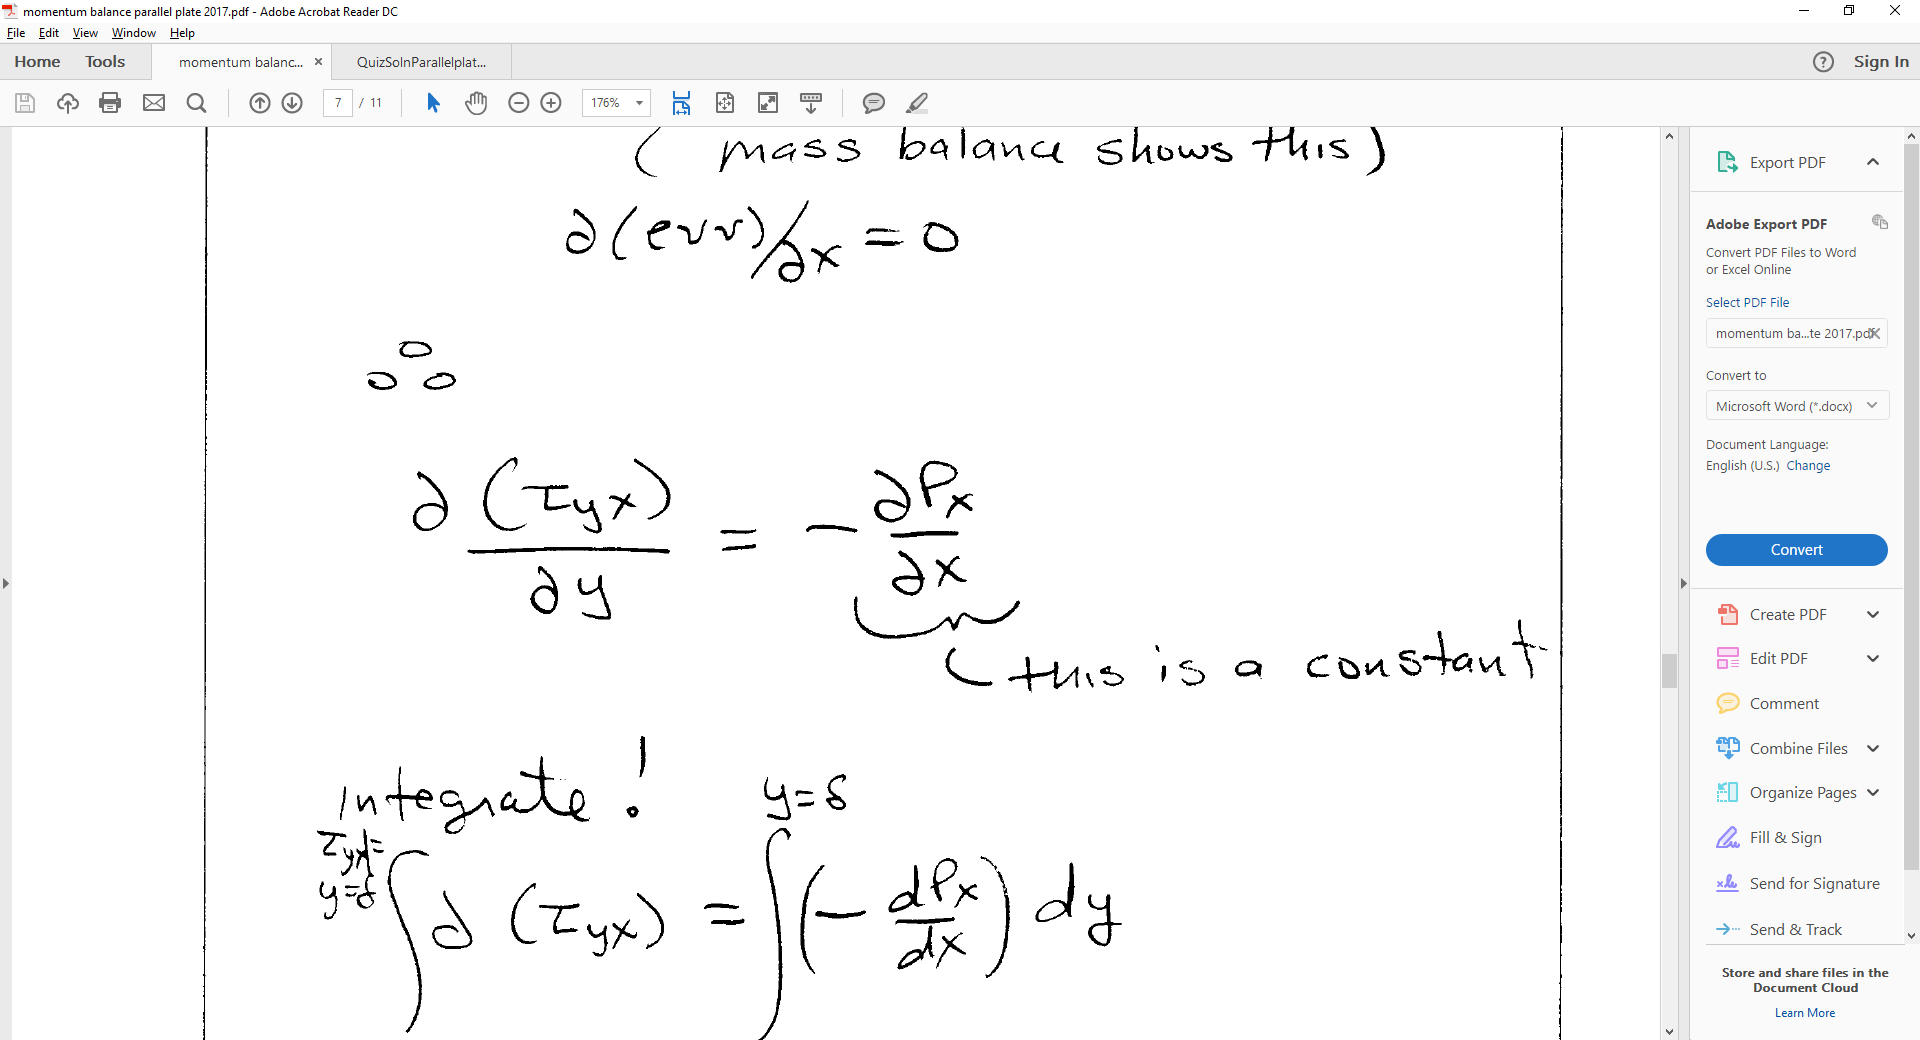 momentum balance parallel plate 2017.pdf - Adobe Acrobat Reader DC
File Edit View Window Help
Home Tools momentum balanc... × QuizSolnParallelplat... Sign In
7 / 11 176%
( mass balance shows this )
∂(ρvv)/∂x = 0
∴
∂(τyx)/∂y = - ∂Px/∂x
this is a constant
Integrate!
y=δ
τyx=
y=δ
∫ ∂(τyx) = ∫ (- dPx/dx) dy
Export PDF
Adobe Export PDF
Convert PDF Files to Word
or Excel Online
Select PDF File
momentum ba...te 2017.pdf
Convert to
Microsoft Word (*.docx)
Document Language:
English (U.S.) Change
Convert
Create PDF
Edit PDF
Comment
Combine Files
Organize Pages
Fill & Sign
Send for Signature
Send & Track
Store and share files in the
Document Cloud
Learn More